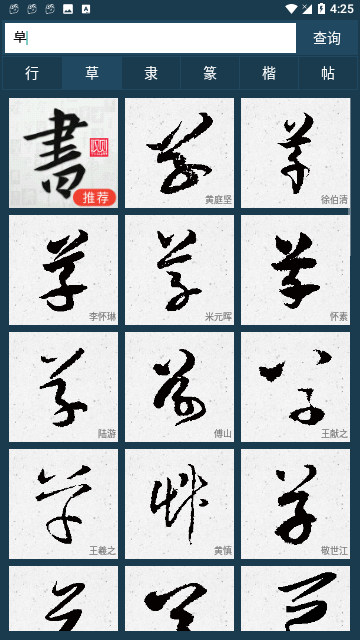 4:25
草 查询
行 草 隶 篆 楷 帖
書 推荐 黄庭坚 徐伯清
李怀琳 米元晖 怀素
陆游 傅山 王献之
王羲之 黄慎 敬世江